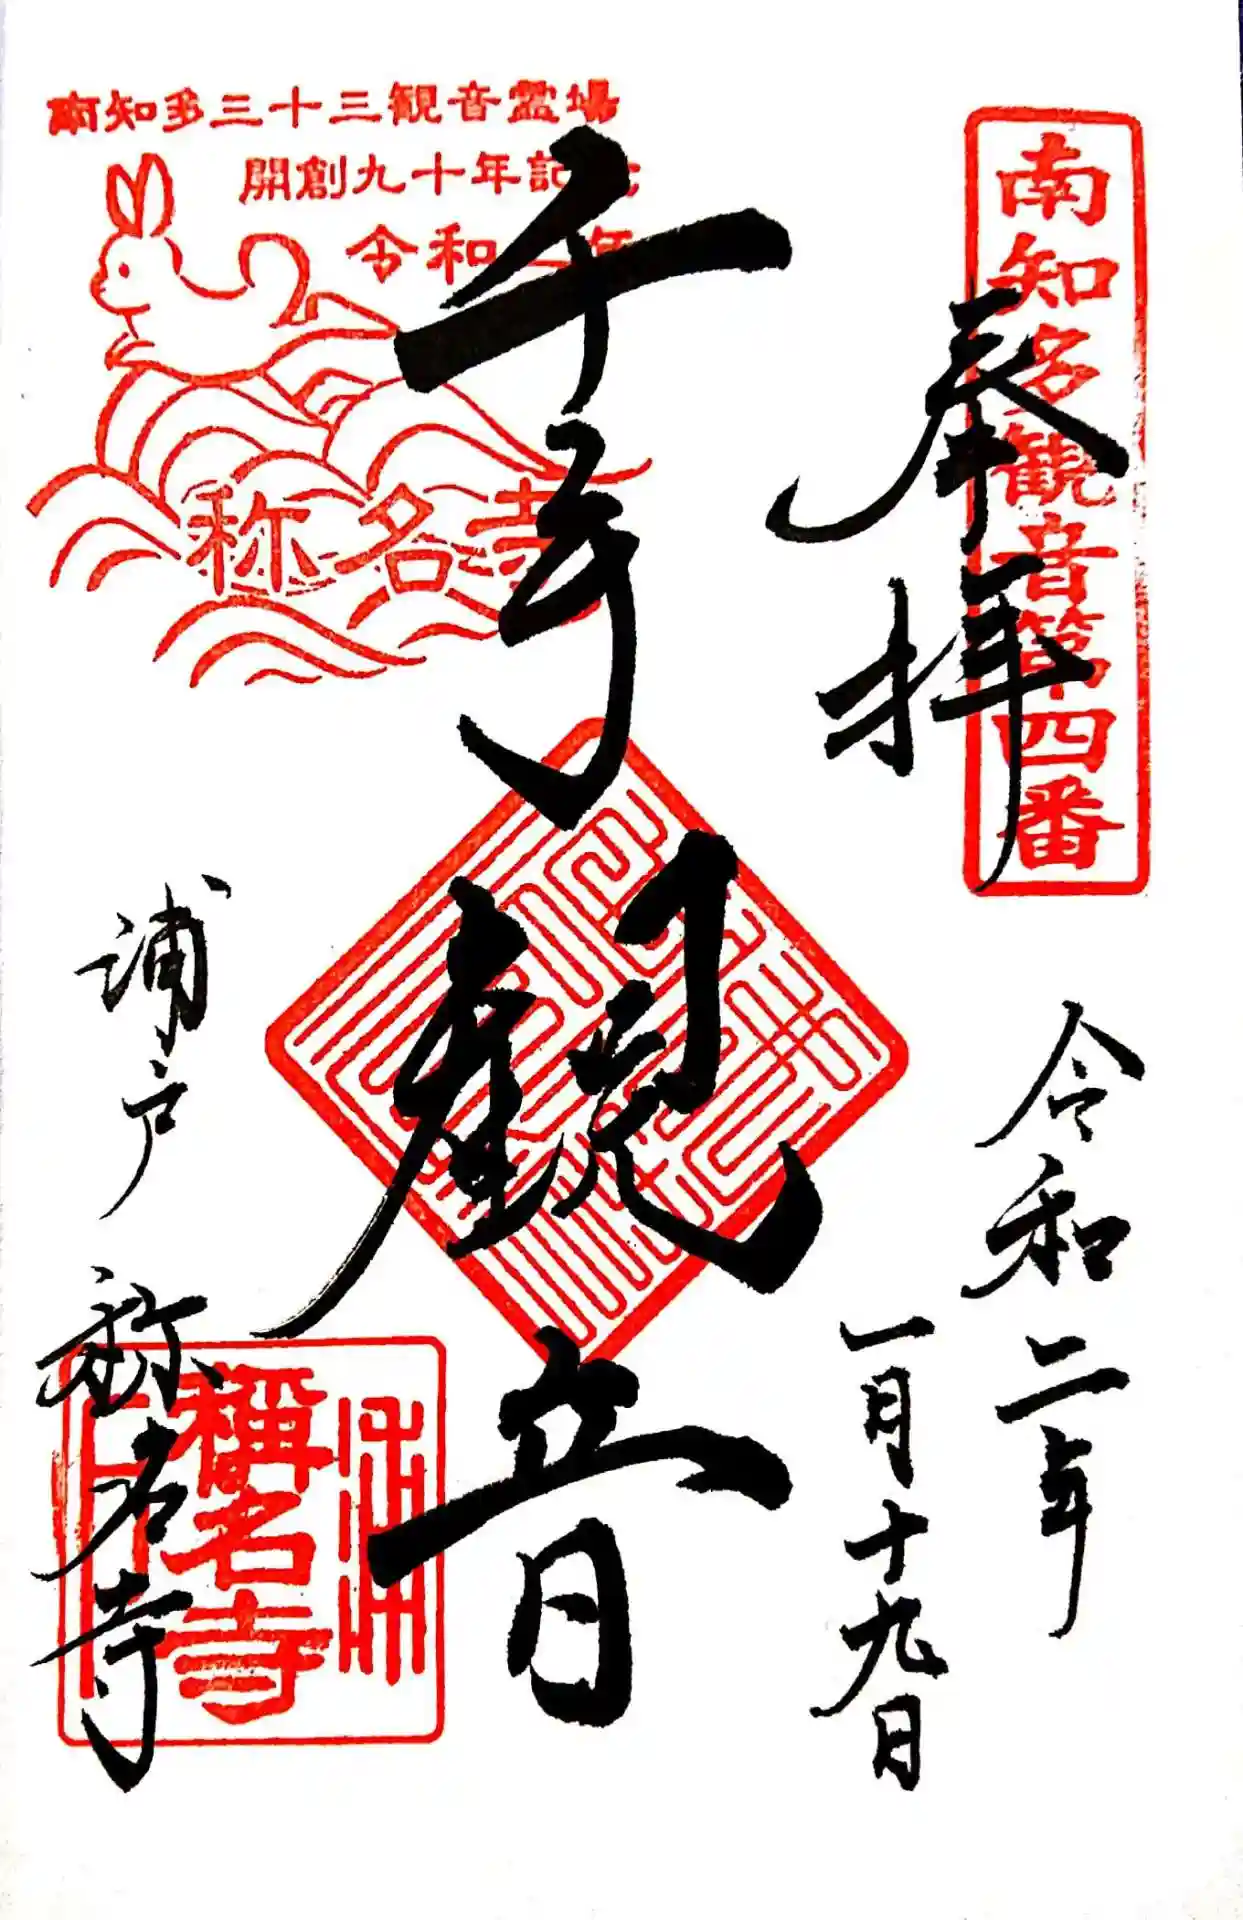 南知多観音第四番
奉拝
令和二年
一月十九日
南知多三十三観音霊場
開創九十年記
令和 年
称名寺
千手観音
浦戸 称名寺
稱名寺